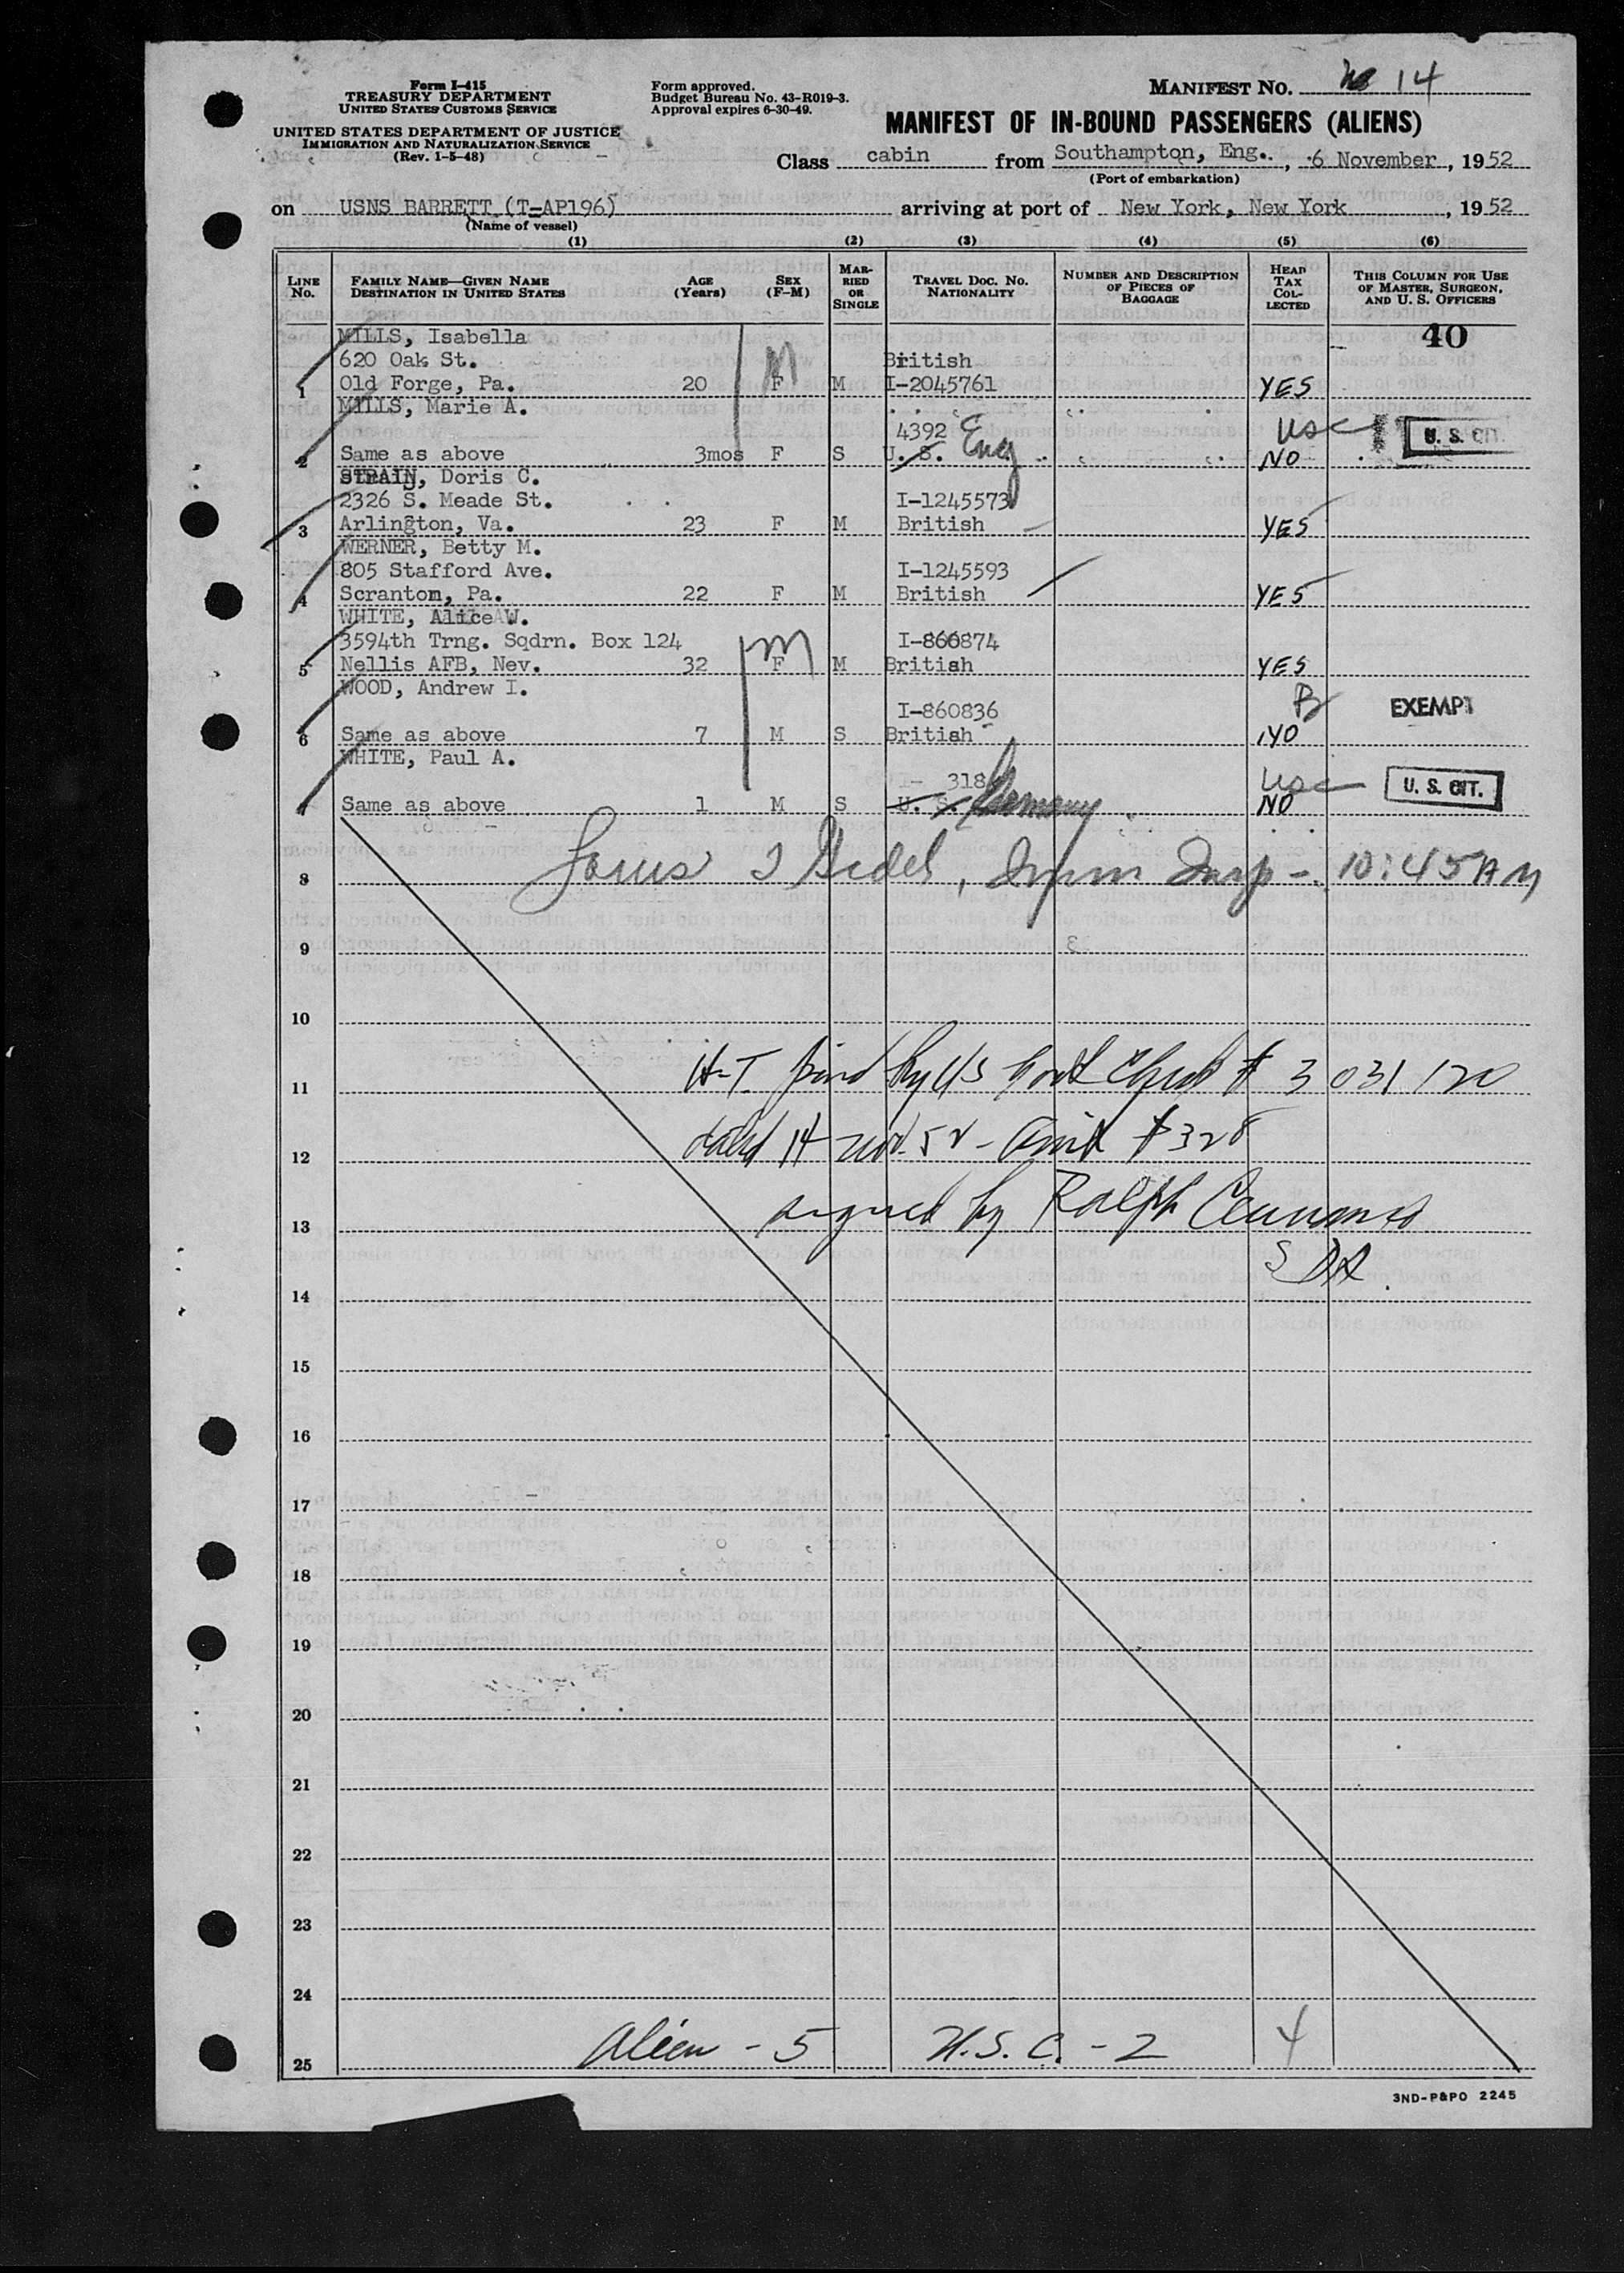 Form I-415
TREASURY DEPARTMENT
UNITED STATES CUSTOMS SERVICE
UNITED STATES DEPARTMENT OF JUSTICE
IMMIGRATION AND NATURALIZATION SERVICE
(Rev. 1-5-48)
Form approved.
Budget Bureau No. 43-R019-3.
Approval expires 6-30-49.
MANIFEST NO. 14
MANIFEST OF IN-BOUND PASSENGERS (ALIENS)
Class cabin from Southampton, Eng., 6 November, 1952
(Port of embarkation)
on USNS BARRETT (T-AP196) arriving at port of New York, New York, 1952
(Name of vessel)
(1) (2) (3) (4) (5) (6)
LINE No. FAMILY NAME—GIVEN NAME DESTINATION IN UNITED STATES AGE (Years) SEX (F-M) MARRIED OR SINGLE TRAVEL DOC. NO. NATIONALITY NUMBER AND DESCRIPTION OF PIECES OF BAGGAGE HEAD TAX COLLECTED THIS COLUMN FOR USE OF MASTER, SURGEON, AND U. S. OFFICERS
MILLS, Isabella 40
620 Oak St. M British
1 Old Forge, Pa. 20 F M I-2045761 YES
MILLS, Marie A.
4392 Eng USC U. S. CIT.
2 Same as above 3mos F S U. S. NO
STRAIN, Doris C.
2326 S. Meade St. I-1245573
3 Arlington, Va. 23 F M British YES
WERNER, Betty M.
805 Stafford Ave. I-1245593
4 Scranton, Pa. 22 F M British YES
WHITE, Alice W.
3594th Trng. Sqdrn. Box 124 M I-860874
5 Nellis AFB, Nev. 32 F M British YES
WOOD, Andrew I.
I-860836 EXEMPT
6 Same as above 7 M S British NO
WHITE, Paul A.
318 USC U. S. CIT.
7 Same as above 1 M S U. S. Germany NO
8 Insp - 10:45 AM
9
10
11 H-T paid by US Govt Check # 3031120
12 dated 14 Nov. 52 - Amt $328
13 signed by Ralph
14
15
16
17
18
19
20
21
22
23
24
25 Alien - 5 U.S.C. - 2 4
3ND-P&PO 2245